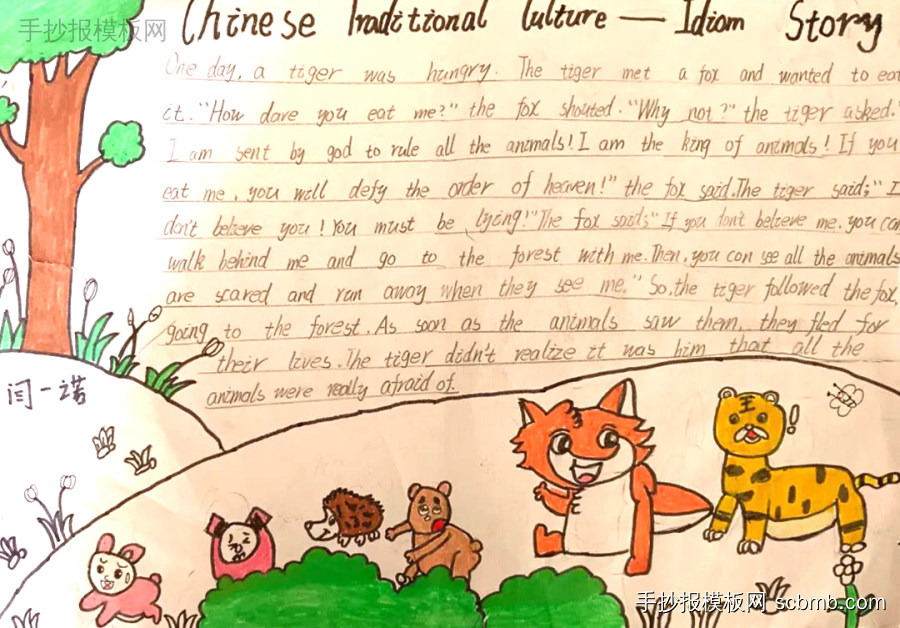 手抄报模板网
Chinese Traditional Culture — Idiom Story
One day, a tiger was hungry. The tiger met a fox and wanted to eat
it. "How dare you eat me?" the fox shouted. "Why not?" the tiger asked."
I am sent by god to rule all the animals! I am the king of animals! If you
eat me, you will defy the order of heaven!" the fox said. The tiger said;" I
don't believe you! You must be lying!" The fox said;" If you don't believe me, you can
walk behind me and go to the forest with me. Then, you can see all the animals
are scared and run away when they see me." So, the tiger followed the fox,
going to the forest. As soon as the animals saw them, they fled for
their lives. The tiger didn't realize it was him that all the
animals were really afraid of.
闫一诺
王
!
手抄报模板网 scbmb.com